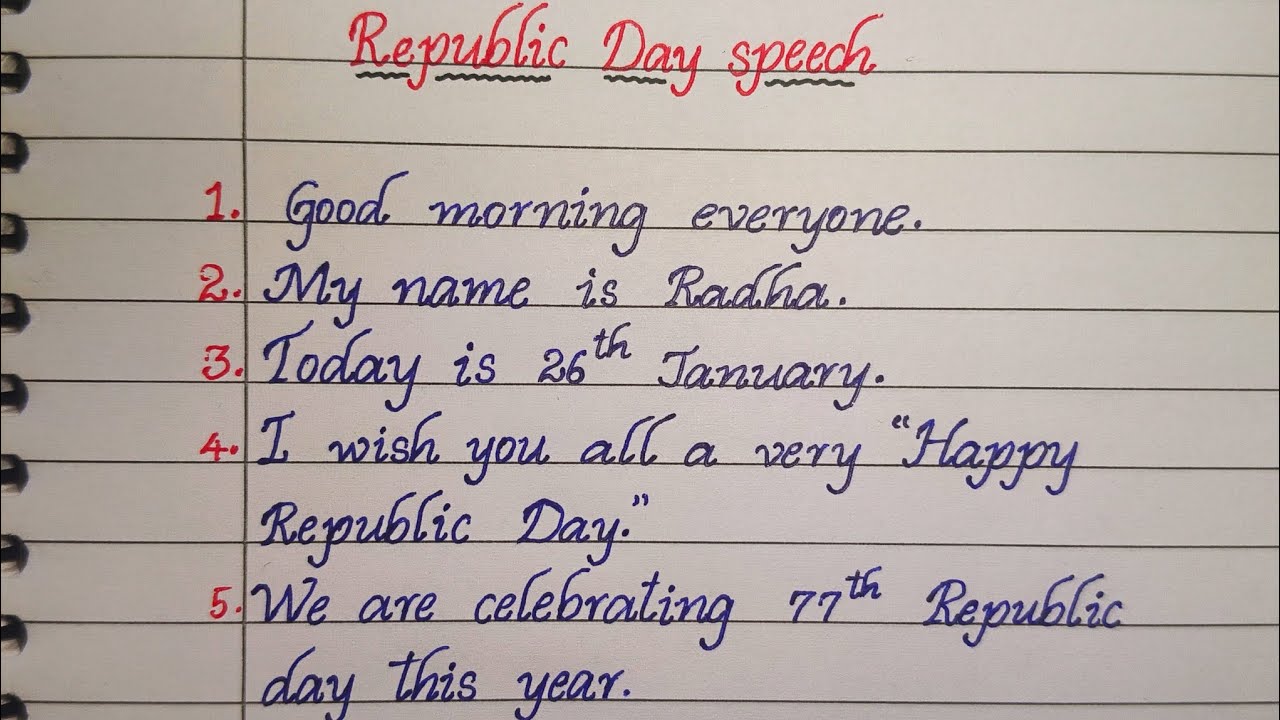 Republic Day speech
1. Good morning everyone.
2. My name is Radha.
3. Today is 26th January.
4. I wish you all a very "Happy
Republic Day."
5. We are celebrating 77th Republic
day this year.